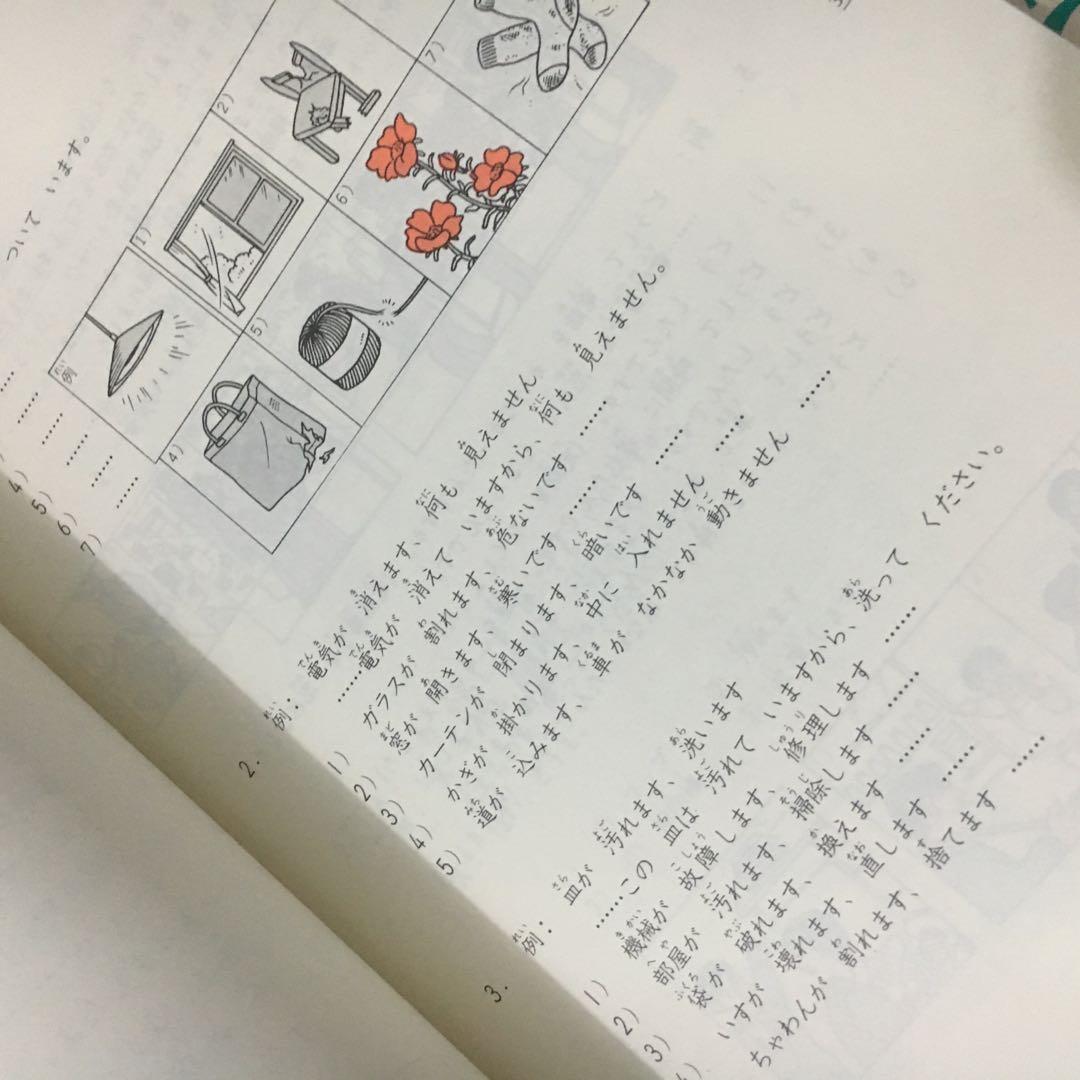 ついて います。
例
1)
2)
4)
5)
6)
7)
4)
5)
6)
7)
2.
例: 電気が 消えます、何も 見えません
……電気が 消えて いますから、何も 見えません。
1) ガラスが 割れます、危ないです ……
2) 窓が 開きます、寒いです ……
3) カーテンが 閉まります、暗いです ……
4) かぎが 掛かります、中に 入れません ……
5) 道が 込みます、車が なかなか 動きません ……
3.
例: 皿が 汚れます、洗います
……この 皿は 汚れて いますから、洗って ください。
1) 機械が 故障します、修理します ……
2) 部屋が 汚れます、掃除します ……
3) 袋が 破れます、換えます ……
いすが 壊れます、直します ……
ちゃわんが 割れます、捨てます ……